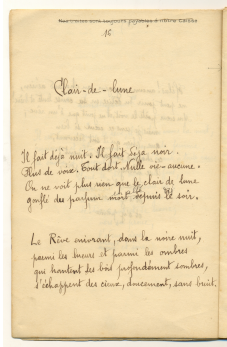 Nos ventes sont toujours payables à notre Caisse
16
Clair-de-lune
Il fait déjà nuit. Il fait déjà noir.
Plus de voix. Tout dort. Nulle vie aucune.
On ne voit plus rien que le clair de lune
gonflé des parfums mort depuis le soir.
Le Rêve enivrant, dans la noire nuit,
parmi les lueurs et parmi les ombres
qui hantent les bois profondément sombres,
s'échappent des cieux, doucement, sans bruit.